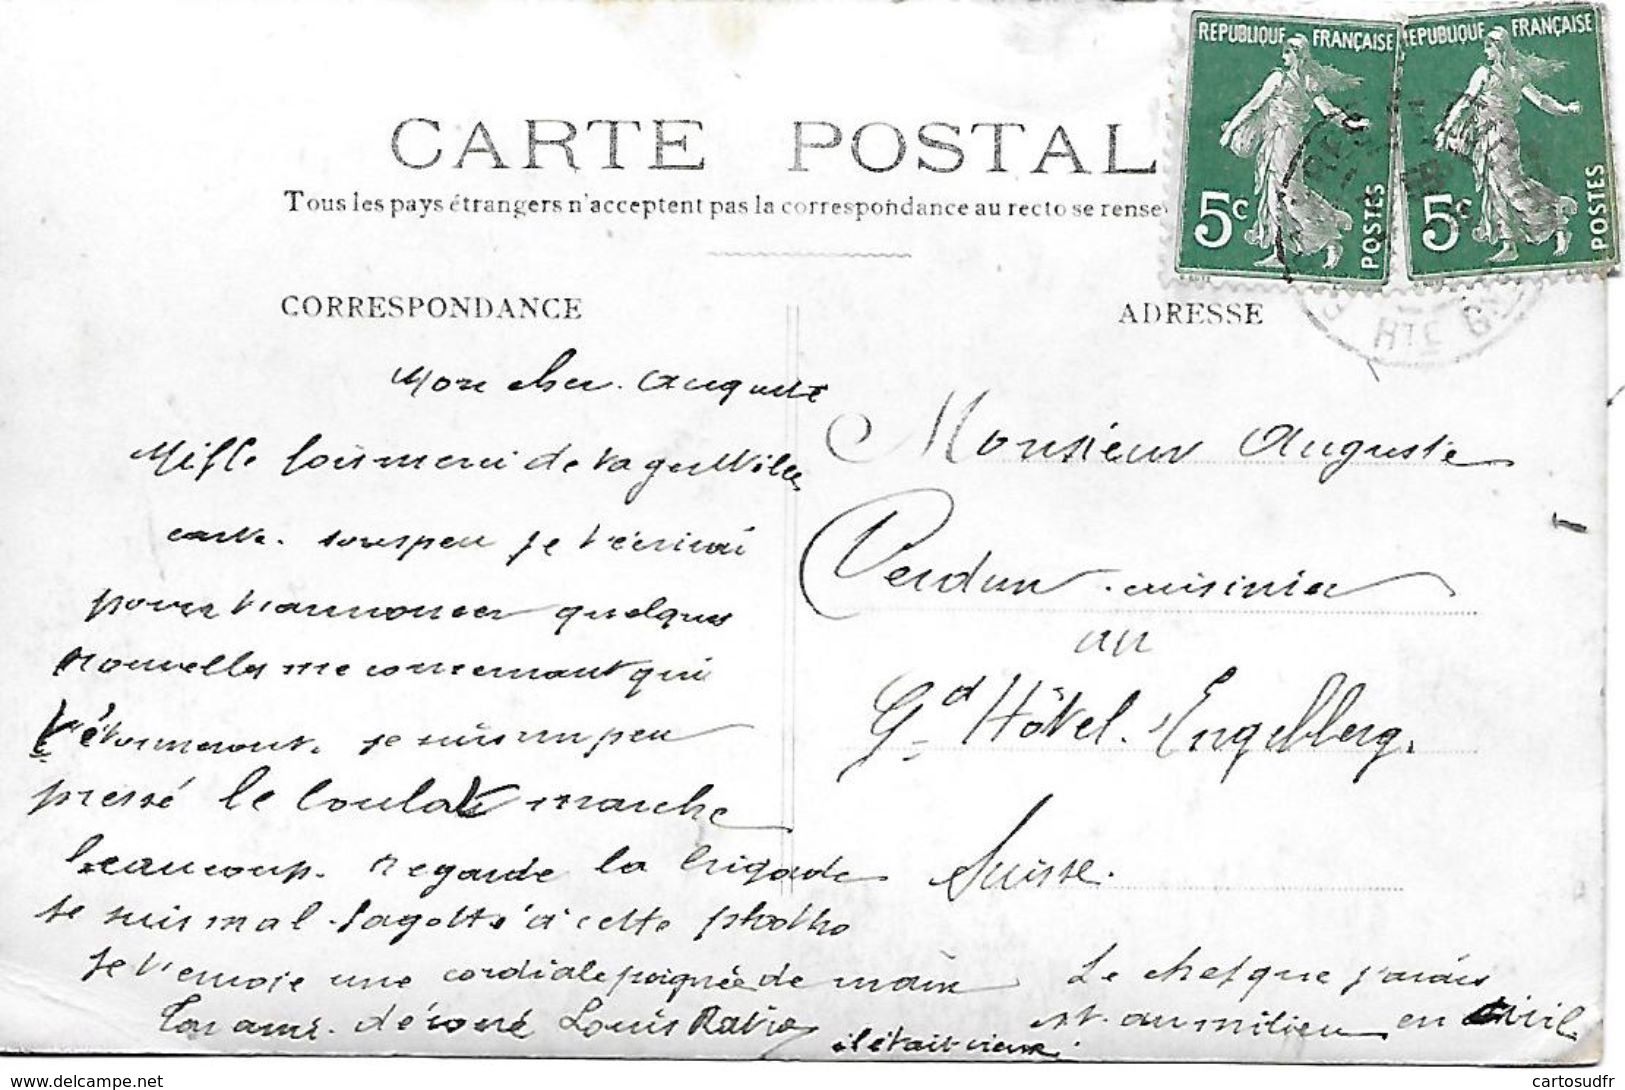 REPUBLIQUE FRANÇAISE
5c
POSTES
REPUBLIQUE FRANÇAISE
5c
POSTES
HTE
CARTE POSTAL
Tous les pays étrangers n'acceptent pas la correspondance au recto se rense
CORRESPONDANCE
Mon cher Auguste
Mille fois merci de ta gentille
carte. sous peu je t'écrirai
pour t'annoncer quelques
nouvelles me concernant qui
t'étonneront. je suis un peu
pressé le boulot marche
beaucoup. Regarde la brigade
je suis mal fagotté à cette photho
je t'envoie une cordiale poignée de main
Ton ami dévoué Louis
ADRESSE
Monsieur Auguste
Verdun cuisinier
au
Gd Hôtel. Engelberg.
Suisse.
Le chef que j'avais
est au milieu en civil
il était vieux.
www.delcampe.net
cartosudfr